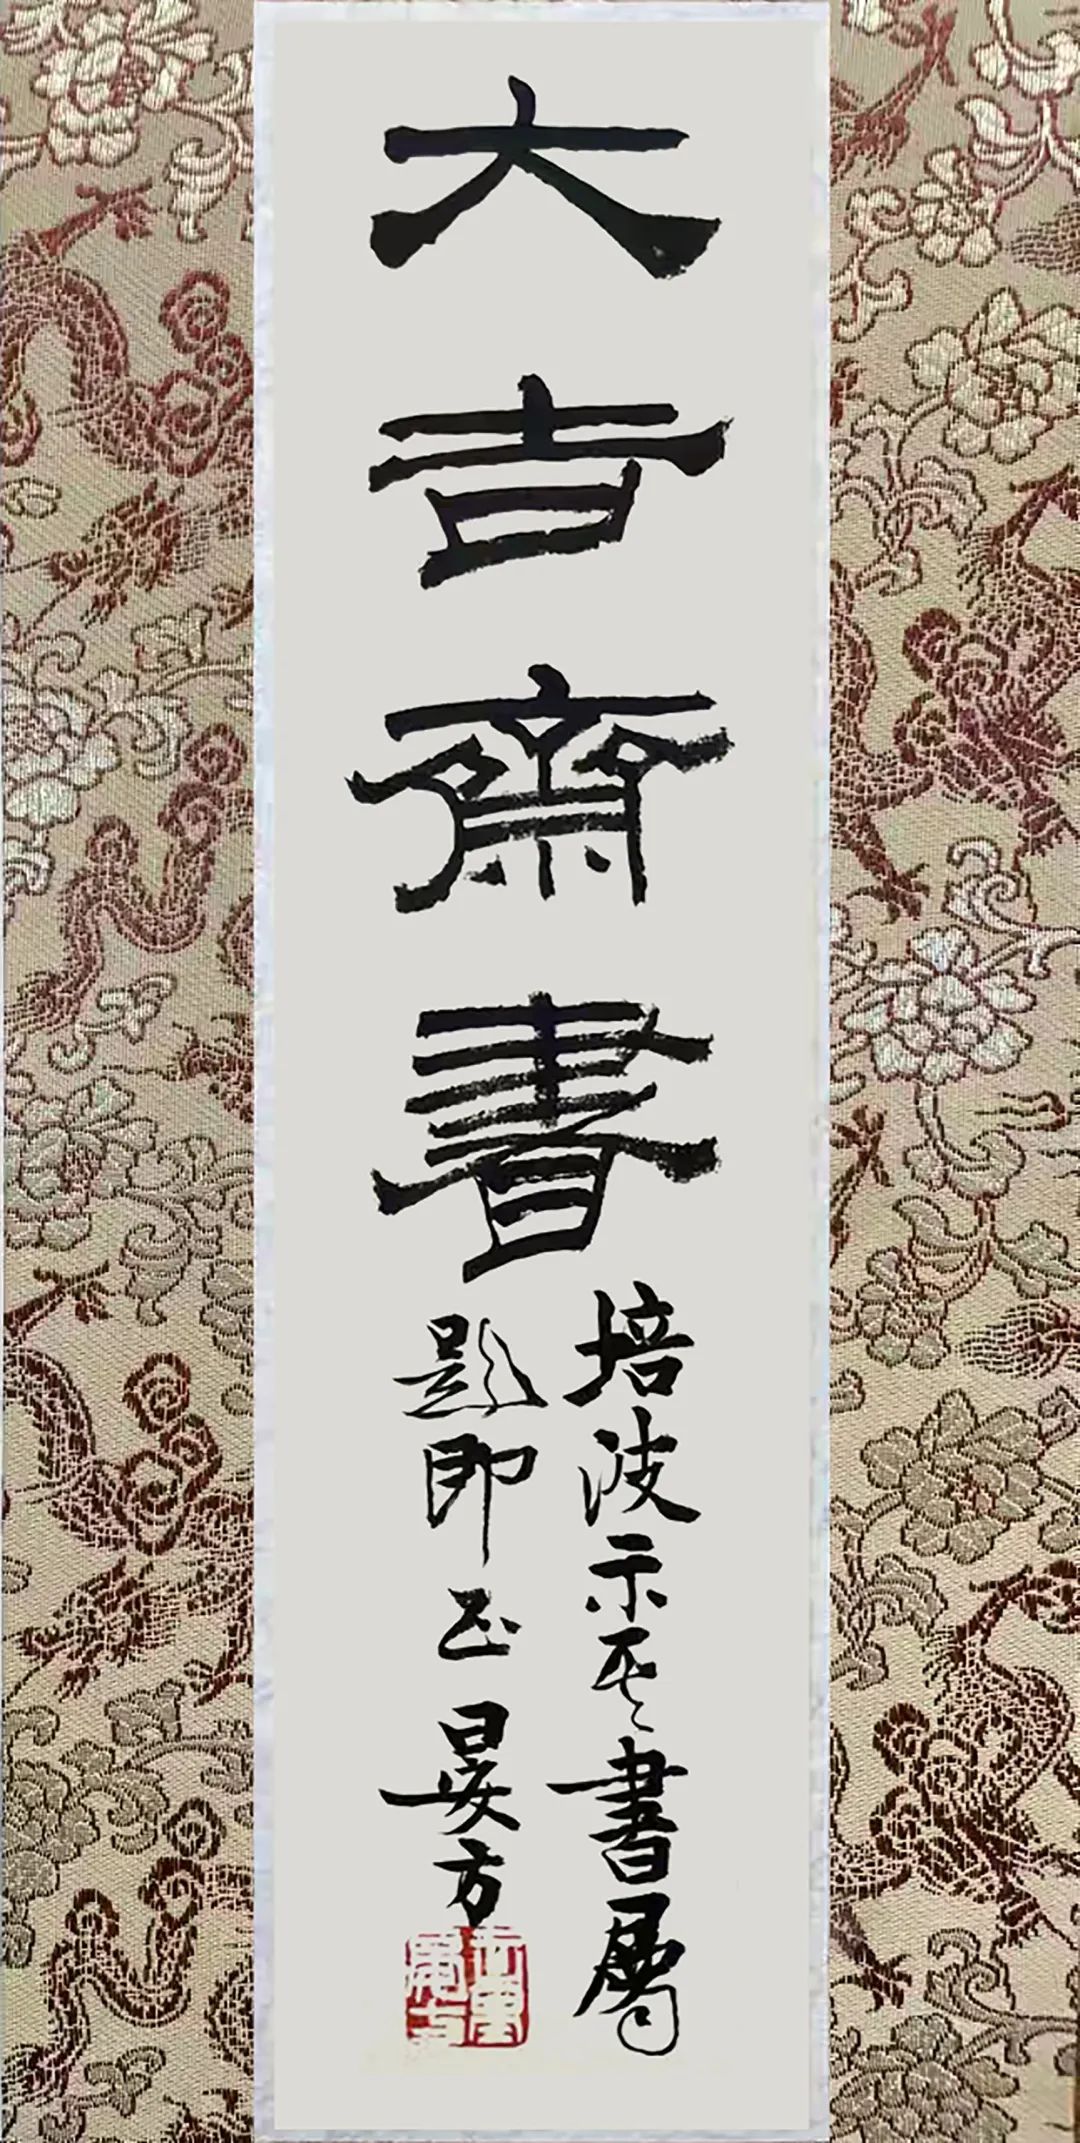 大吉齋書
培波示書屬
題即正晏方